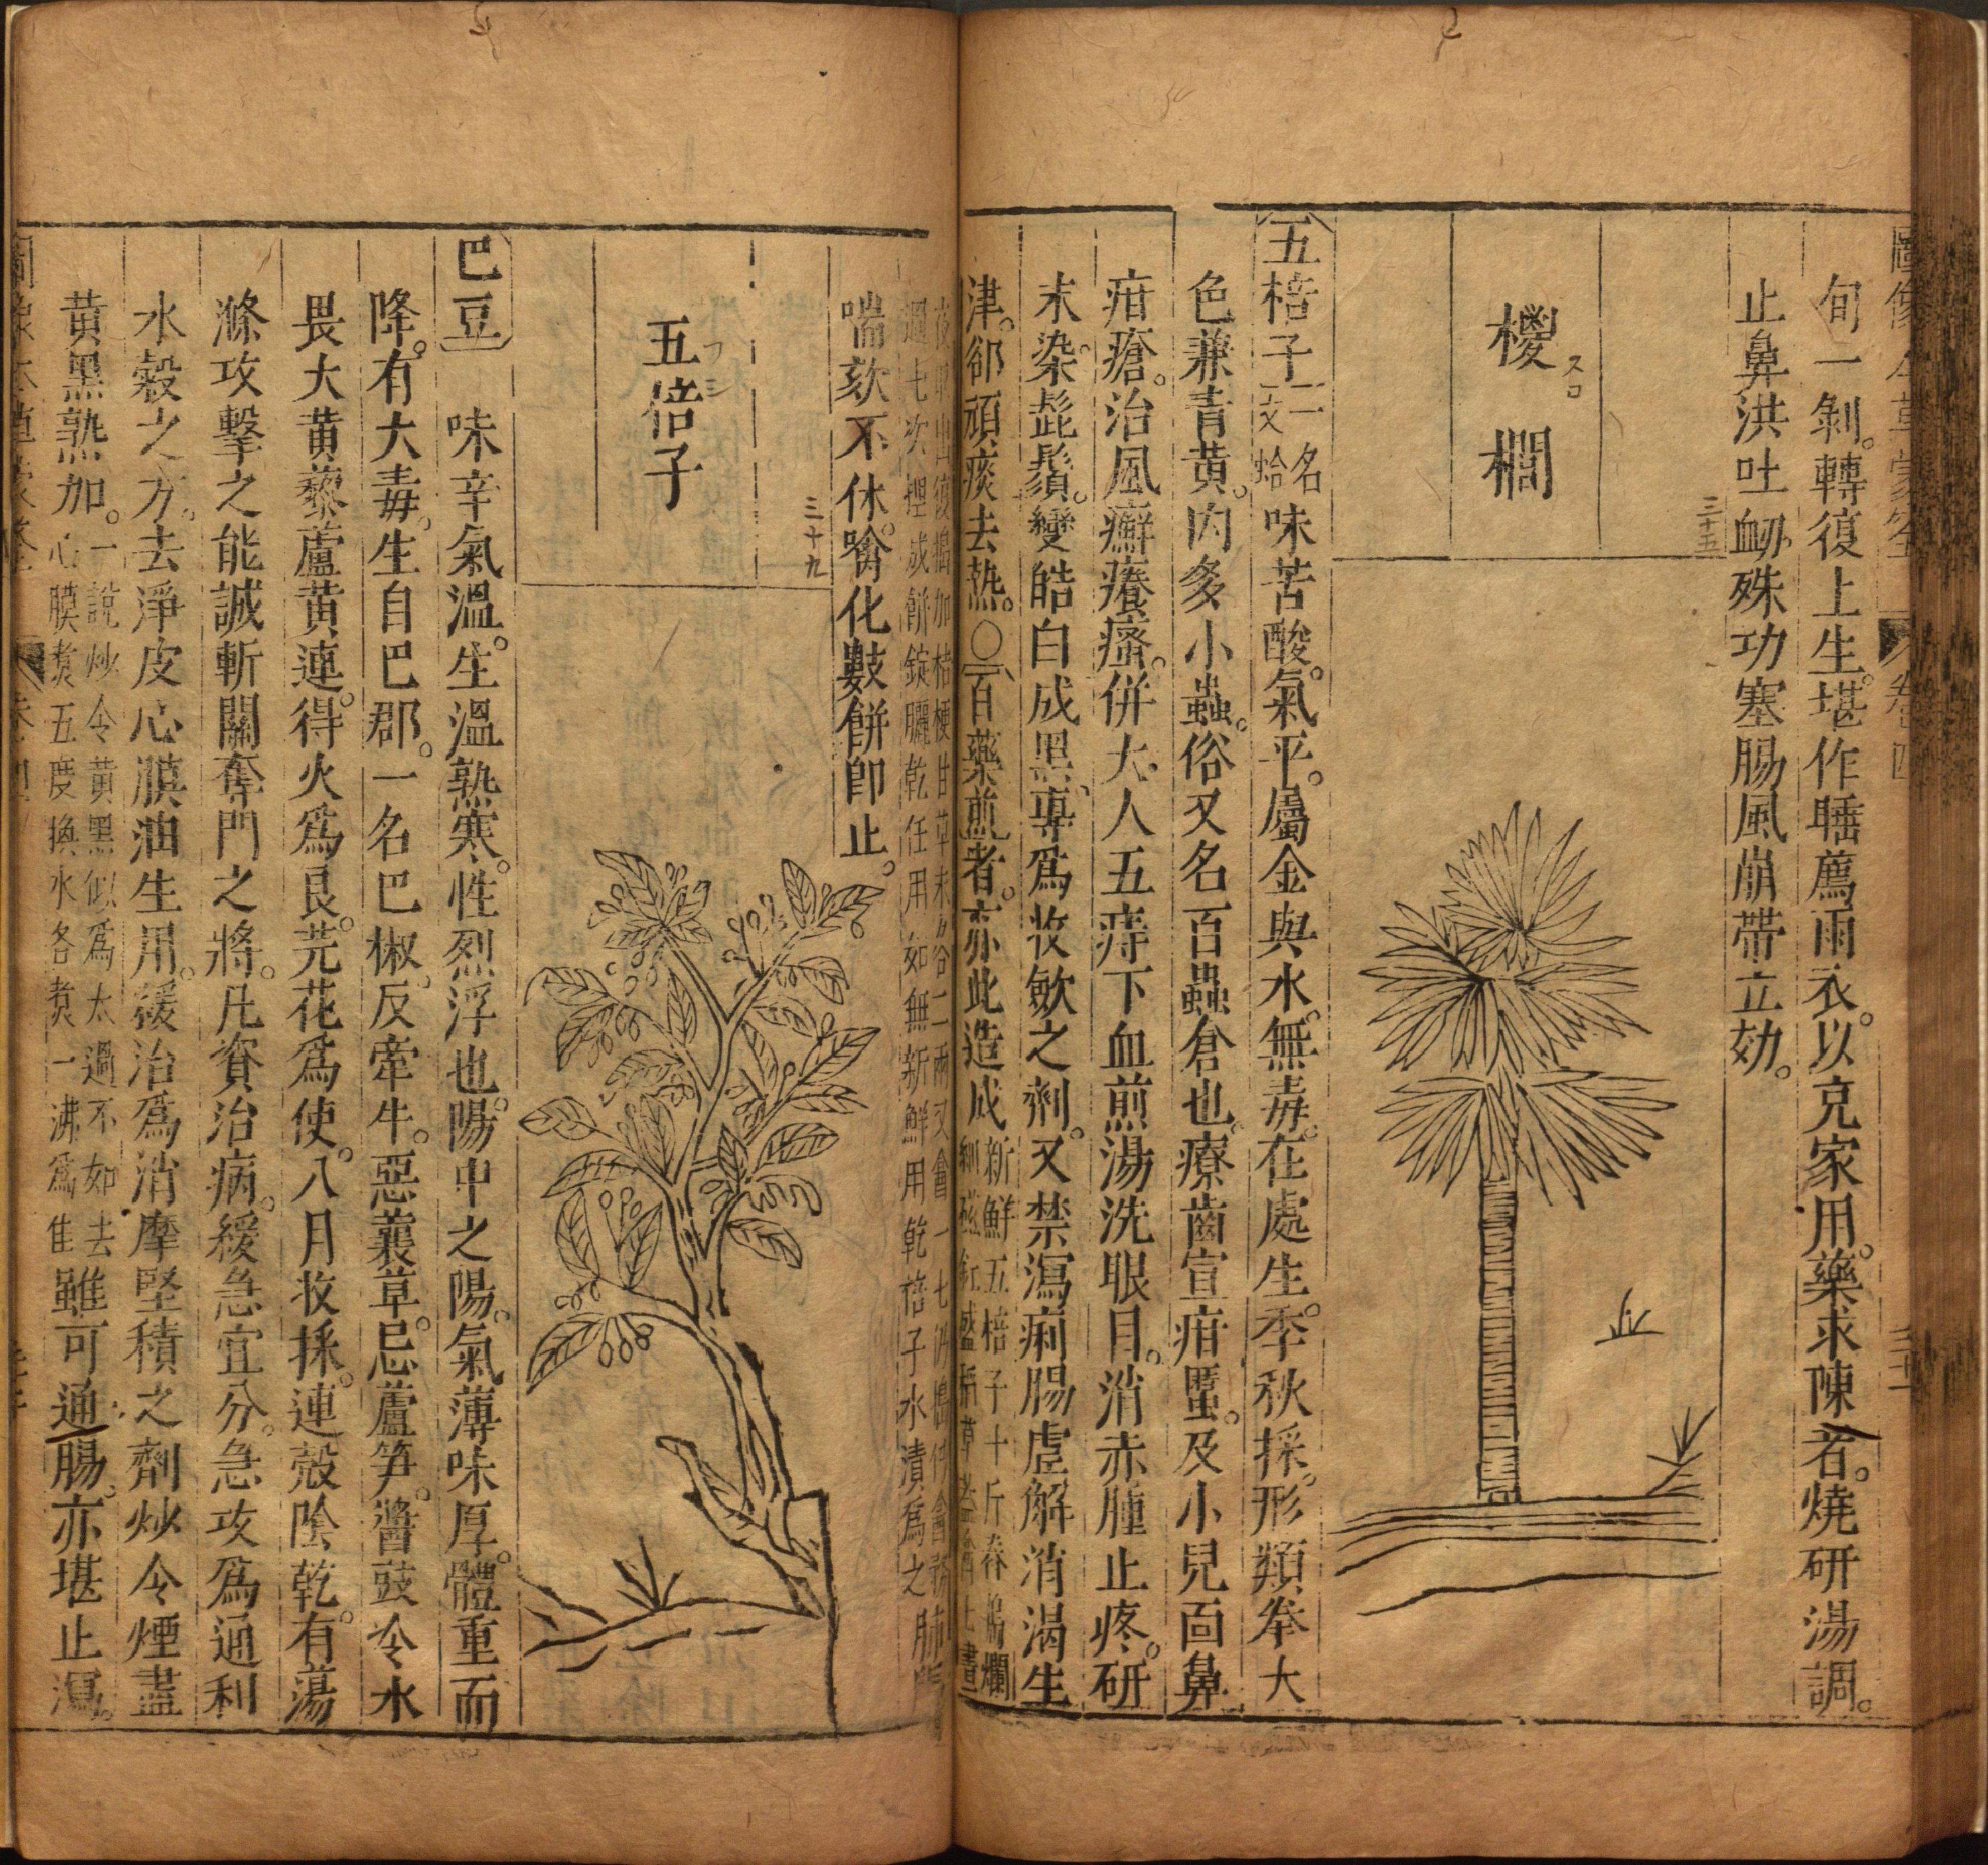 旬一剝。轉復上生。堪作䭾薦雨衣。以克家用。藥求陳者。燒研湯調。
止鼻洪吐衂。殊功塞腸風崩帶立効。
椶櫚
スロ
三十五
五棓子一名文蛤味苦酸。氣平。屬金與水。無毒。在處生。季秋採。形類拳大
色兼青黃。內多小蟲。俗又名百蟲倉也。療齒宣疳䘌。及小兒面鼻
疳瘡。治風癬癢瘙。併大人五痔下血煎湯洗眼目。消赤腫止疼。研
末染髭鬚。變皓白成黑。專爲收斂之劑。又禁瀉痢腸虛解消渴生
津。卻頑痰去熱。○百藥煎者。亦此造成新鮮五棓子十斤舂搗爛
喘欬不休。噙化數餅卽止。
三十九
五倍子
フシ
巴豆 味辛氣溫。生溫熟寒。性烈浮也。陽中之陽。氣薄味厚。體重而
降。有大毒。生自巴郡。一名巴椒。反牽牛。惡蘘草。忌蘆笋。醬豉冷水
畏大黃藜蘆黃連。得火爲良。芫花爲使。八月收採。連殼陰乾。有蕩
滌攻擊之能誠斬關奪門之將。凡資治病。緩急宜分。急攻爲通利
水穀之方。去淨皮心膜油生用。緩治爲消摩堅積之劑炒令煙盡
黃黑熟加。一說炒令黃黑似爲太過不如去心膜煑五度換水各煑一沸爲佳雖可通腸。亦堪止瀉。